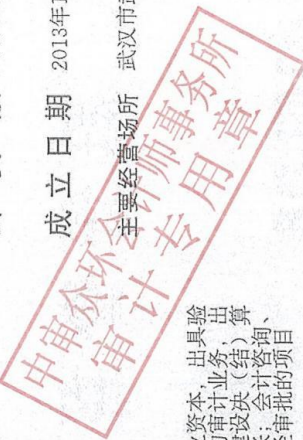 成立日期 2013年1
主要经营场所 武汉市武
中审众环会计师事务所
审计专用章
资本，出具验
审计业务，出
设决（结）算
；会计咨询、
审批的项目